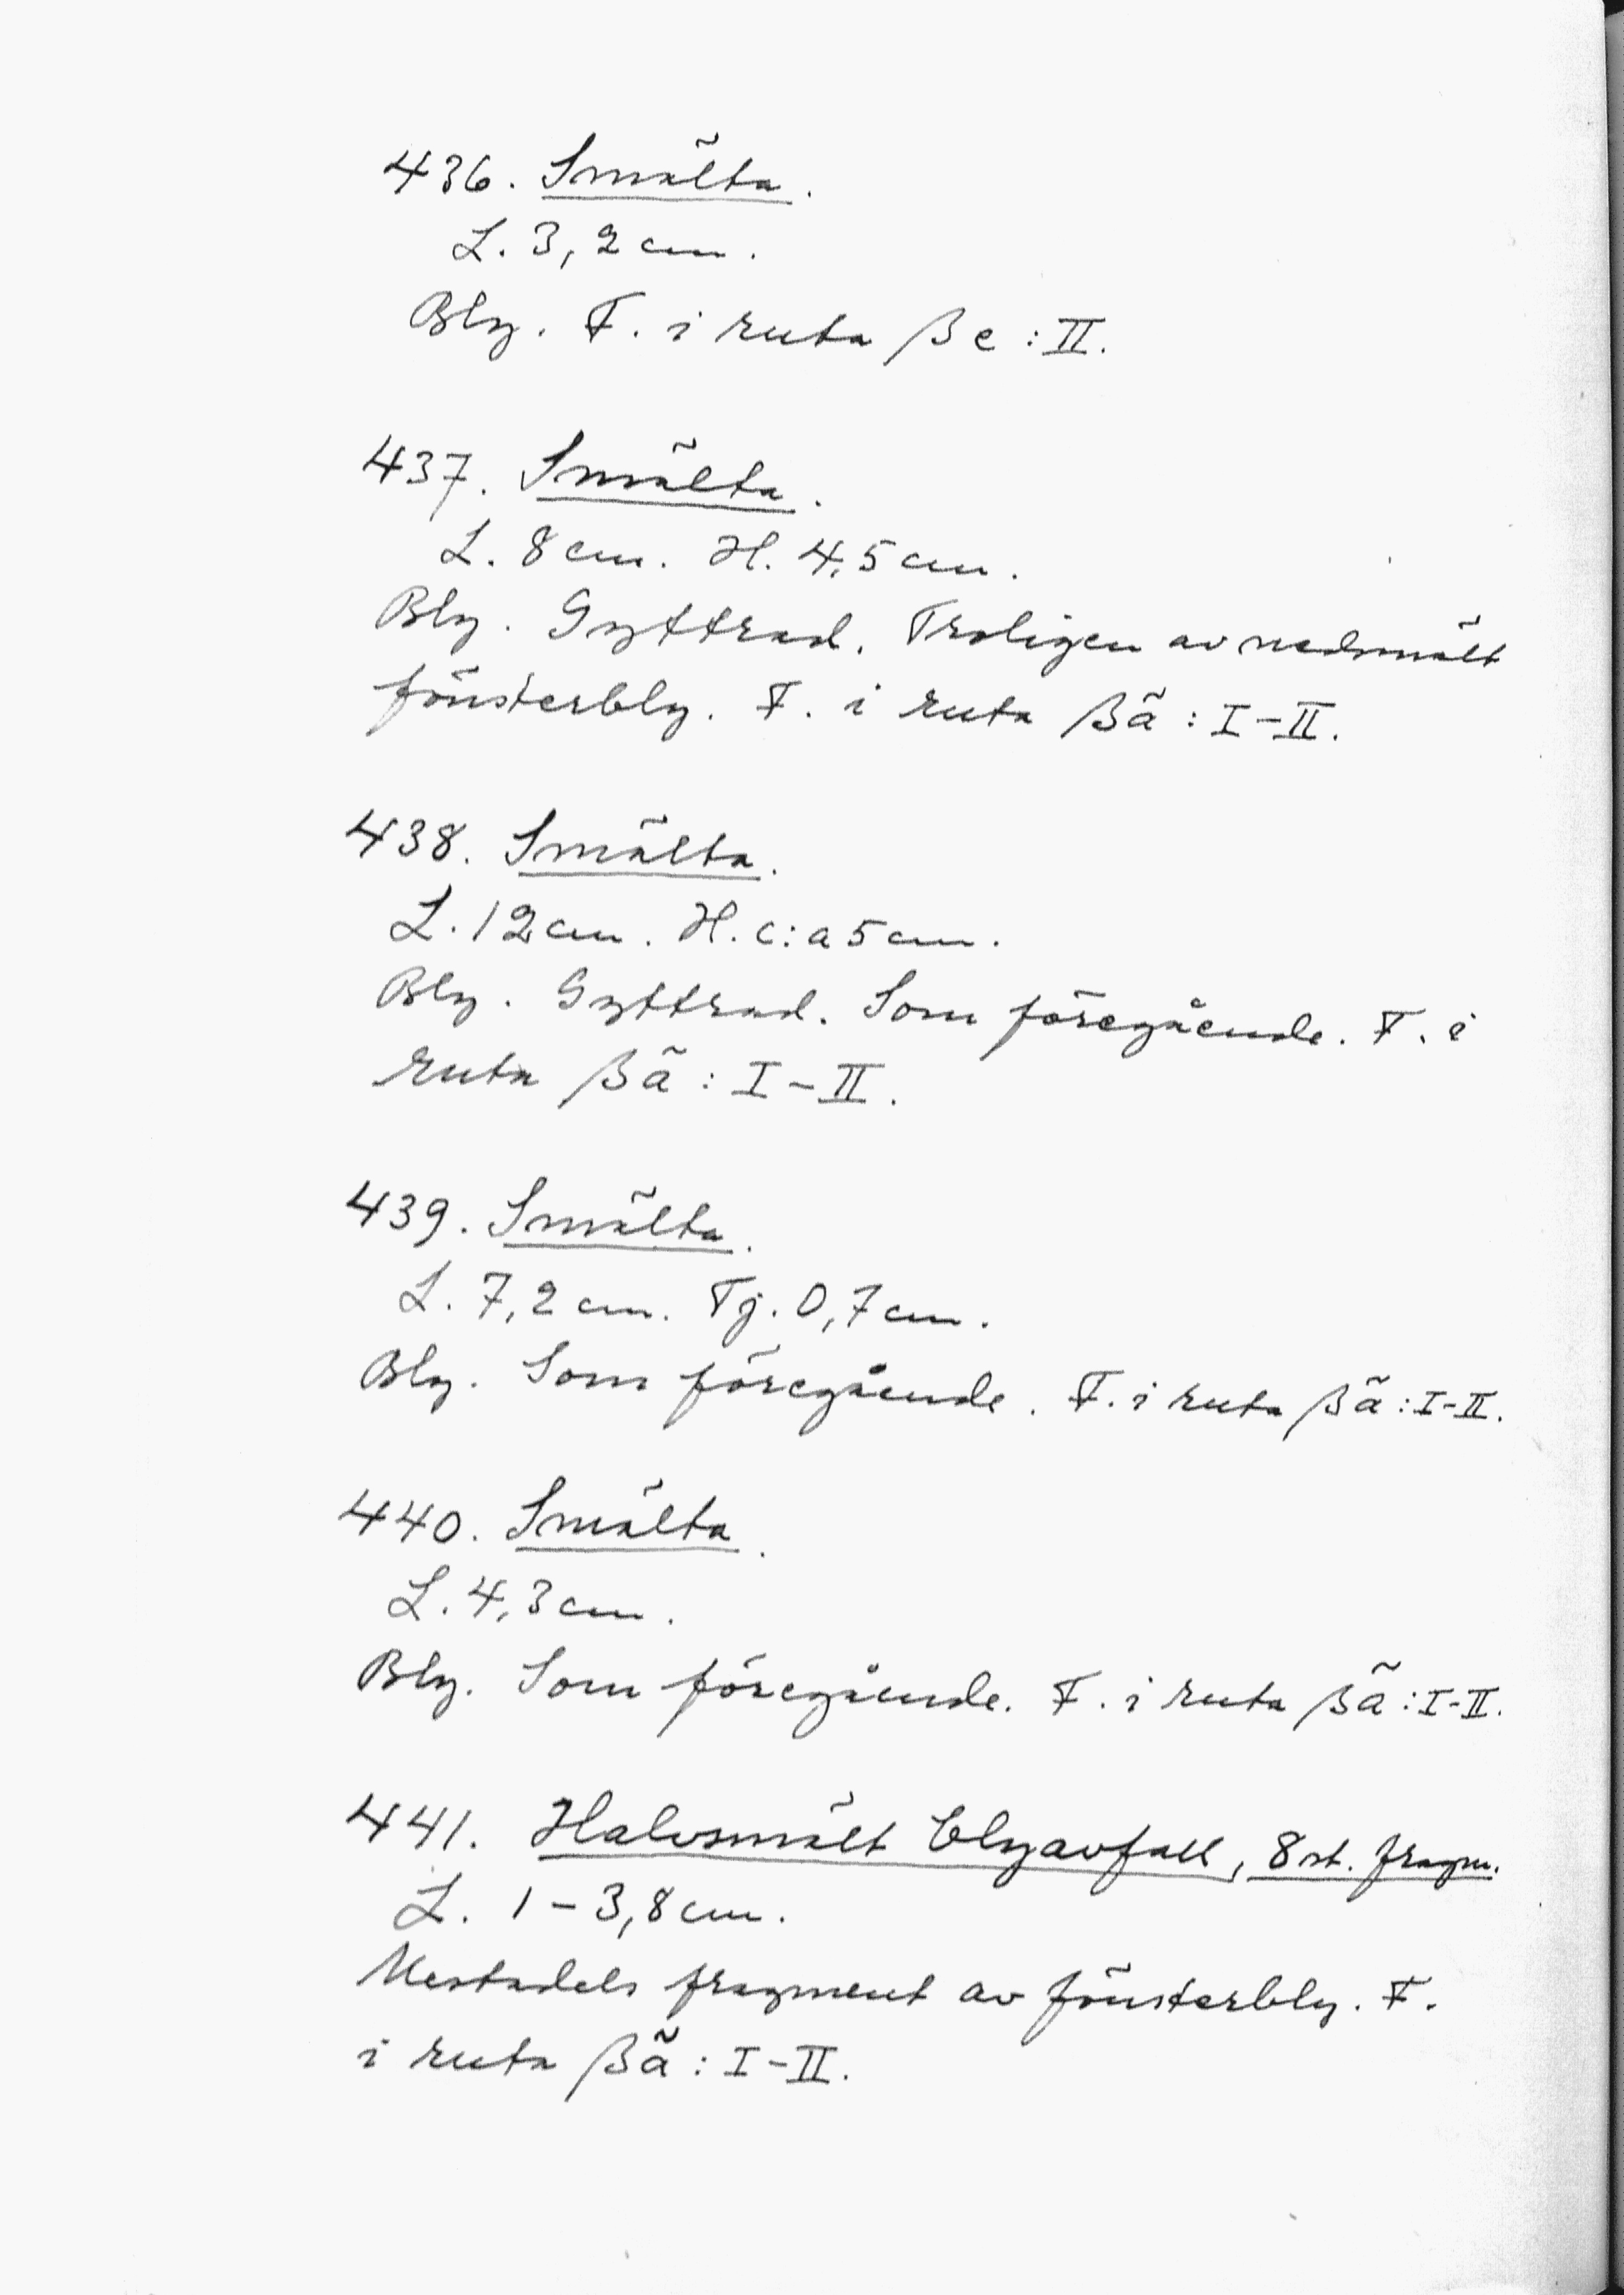 436. Smälta.
L. 3,2 cm.
Bly. F. i ruta βe:II.
437. Smälta.
L. 8 cm. H. 4,5 cm.
Bly. Gyttrad. Troligen av nedsmält
fönsterbly. F. i ruta βä: I-II.
438. Smälta.
L. 12 cm. H. c:a 5 cm.
Bly. Gyttrad. Som föregående. F. i
ruta βä: I-II.
439. Smälta.
L. 7,2 cm. Tj. 0,7 cm.
Bly. Som föregående. F. i ruta βä: I-II.
440. Smälta.
L. 4,3 cm.
Bly. Som föregående. F. i ruta βä: I-II.
441. Halvsmält blyavfall, 8 st. fragm.
L. 1-3,8 cm.
Mestadels fragment av fönsterbly. F.
i ruta βä: I-II.